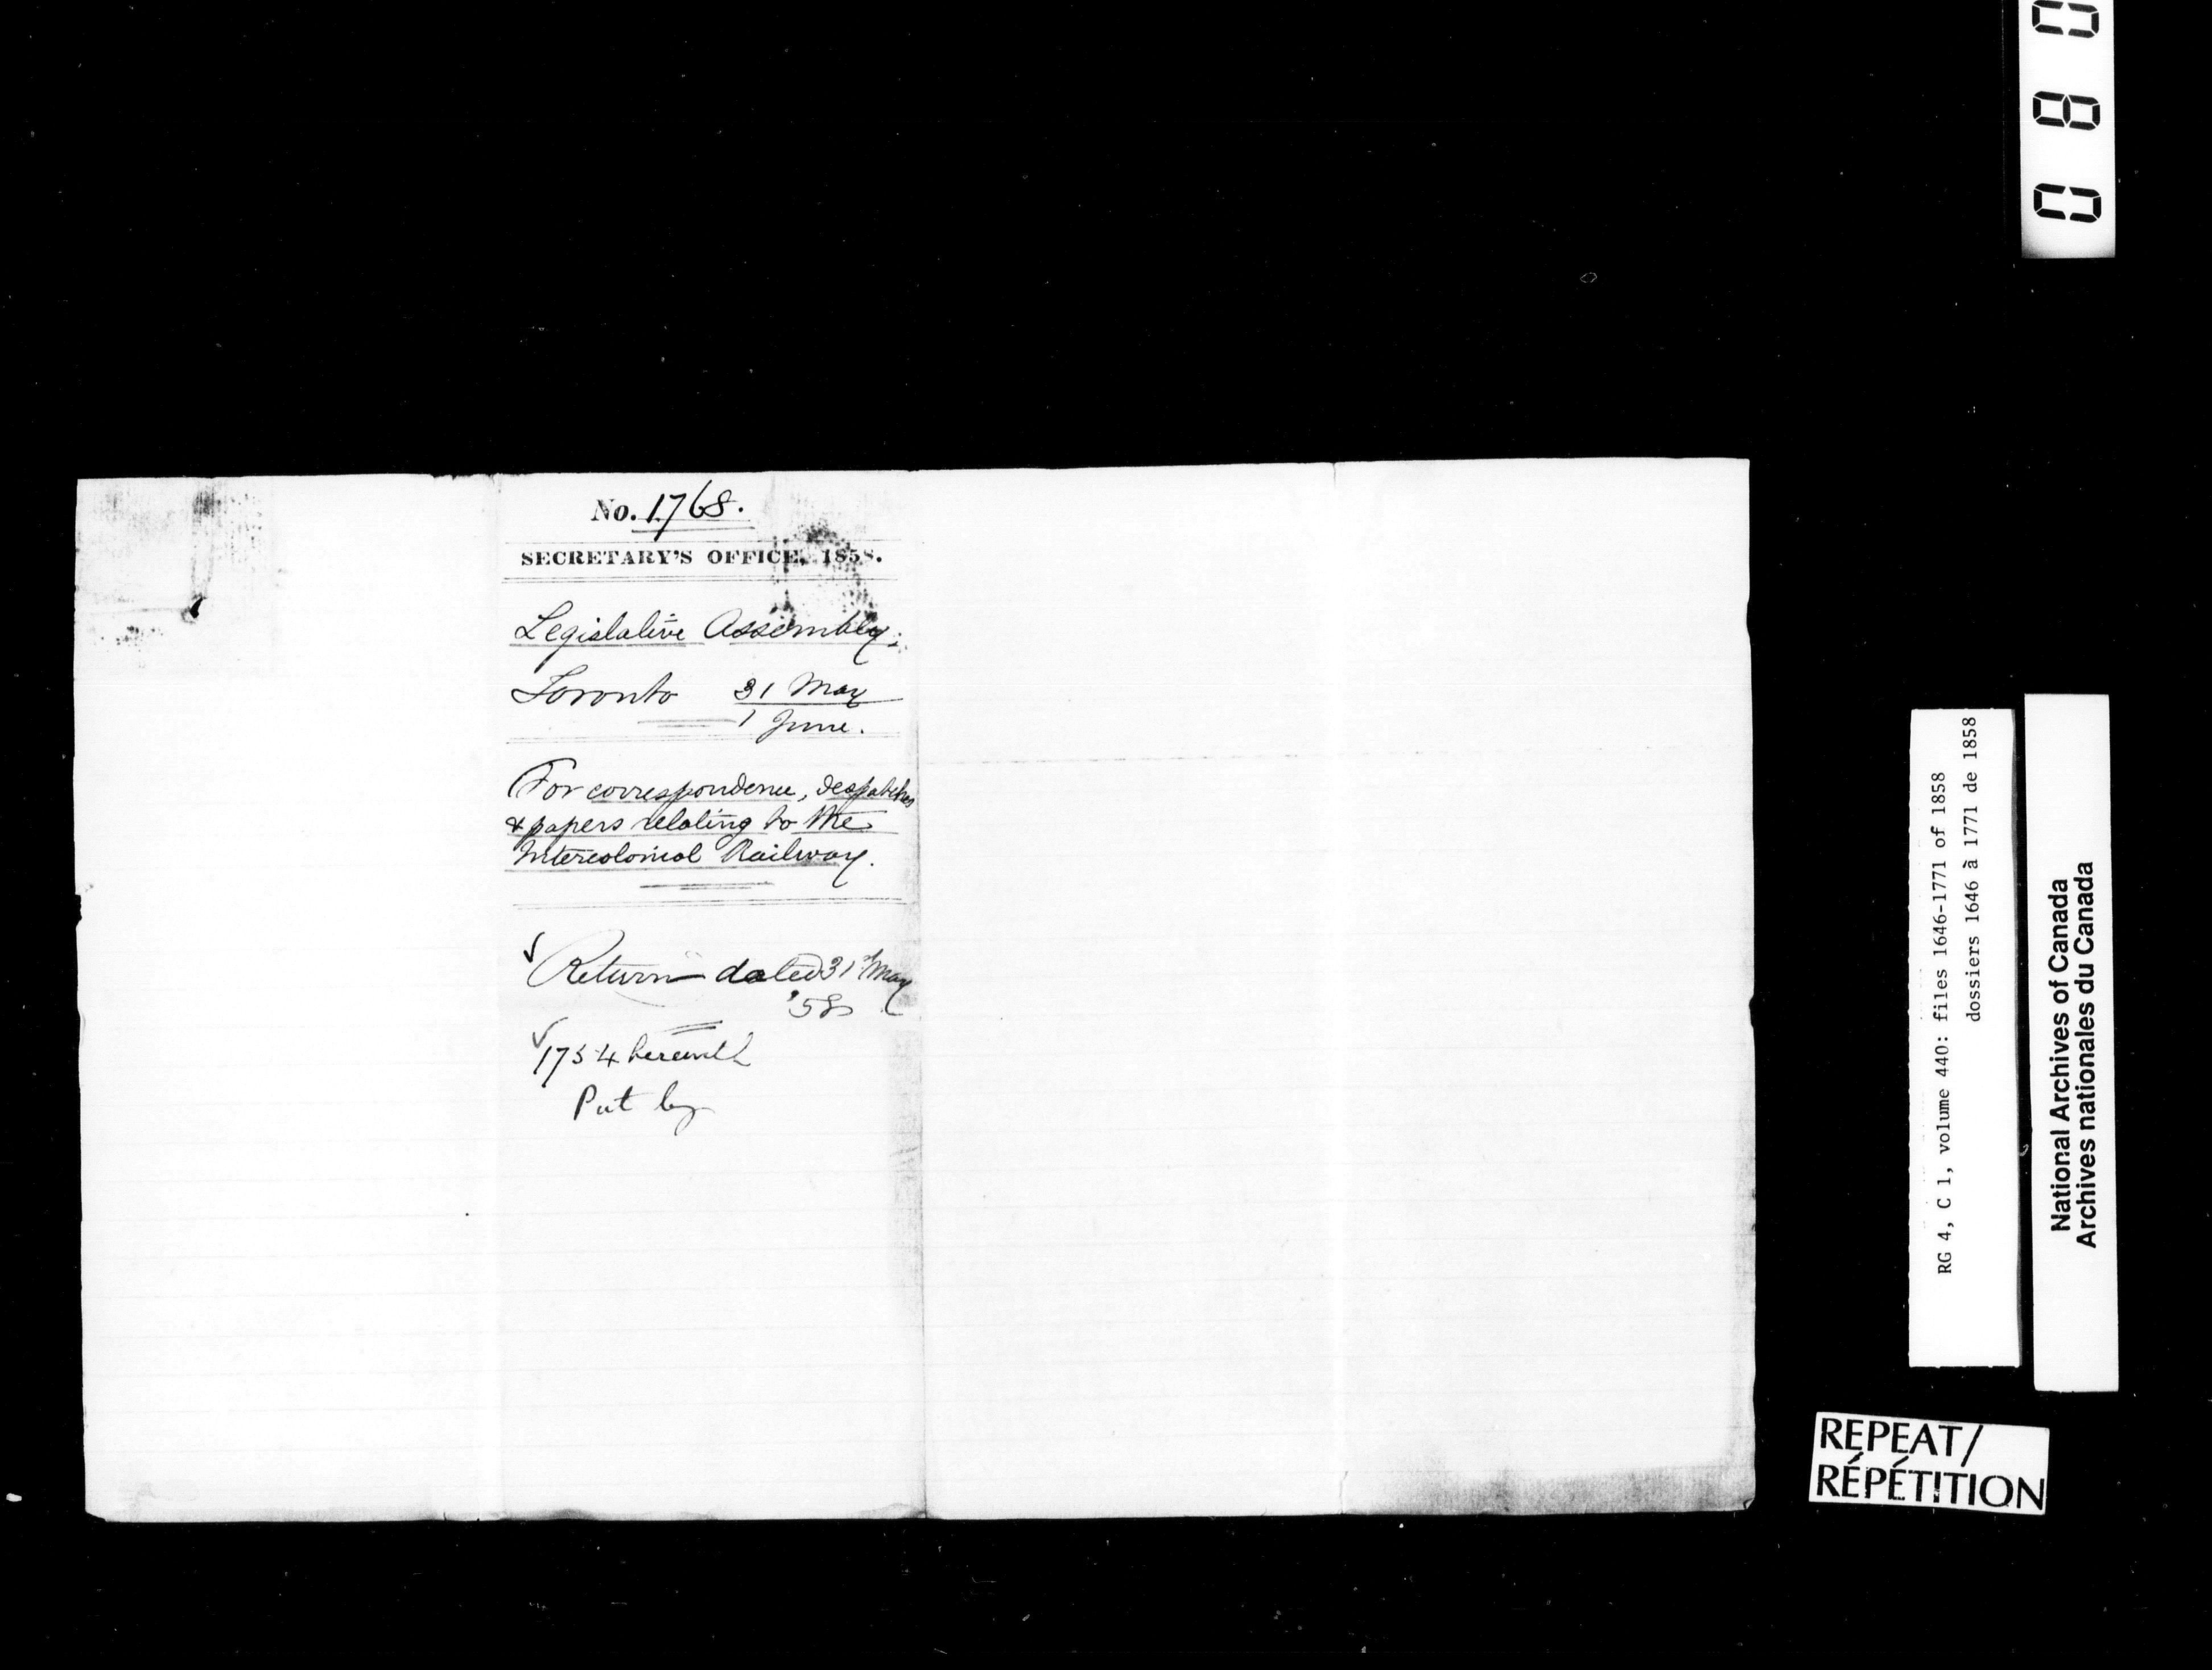 No. 1768.
SECRETARY'S OFFICE, 1858.
Legislative Assembly,
Toronto 31 May
1 June.
For correspondence, despatches
& papers relating to the
Intercolonial Railway.
Return dated 31st May
'58
1754 herewith
Put by
080
RG 4, C 1, volume 440: files 1646-1771 of 1858
dossiers 1646 à 1771 de 1858
National Archives of Canada
Archives nationales du Canada
REPEAT/
RÉPÉTITION